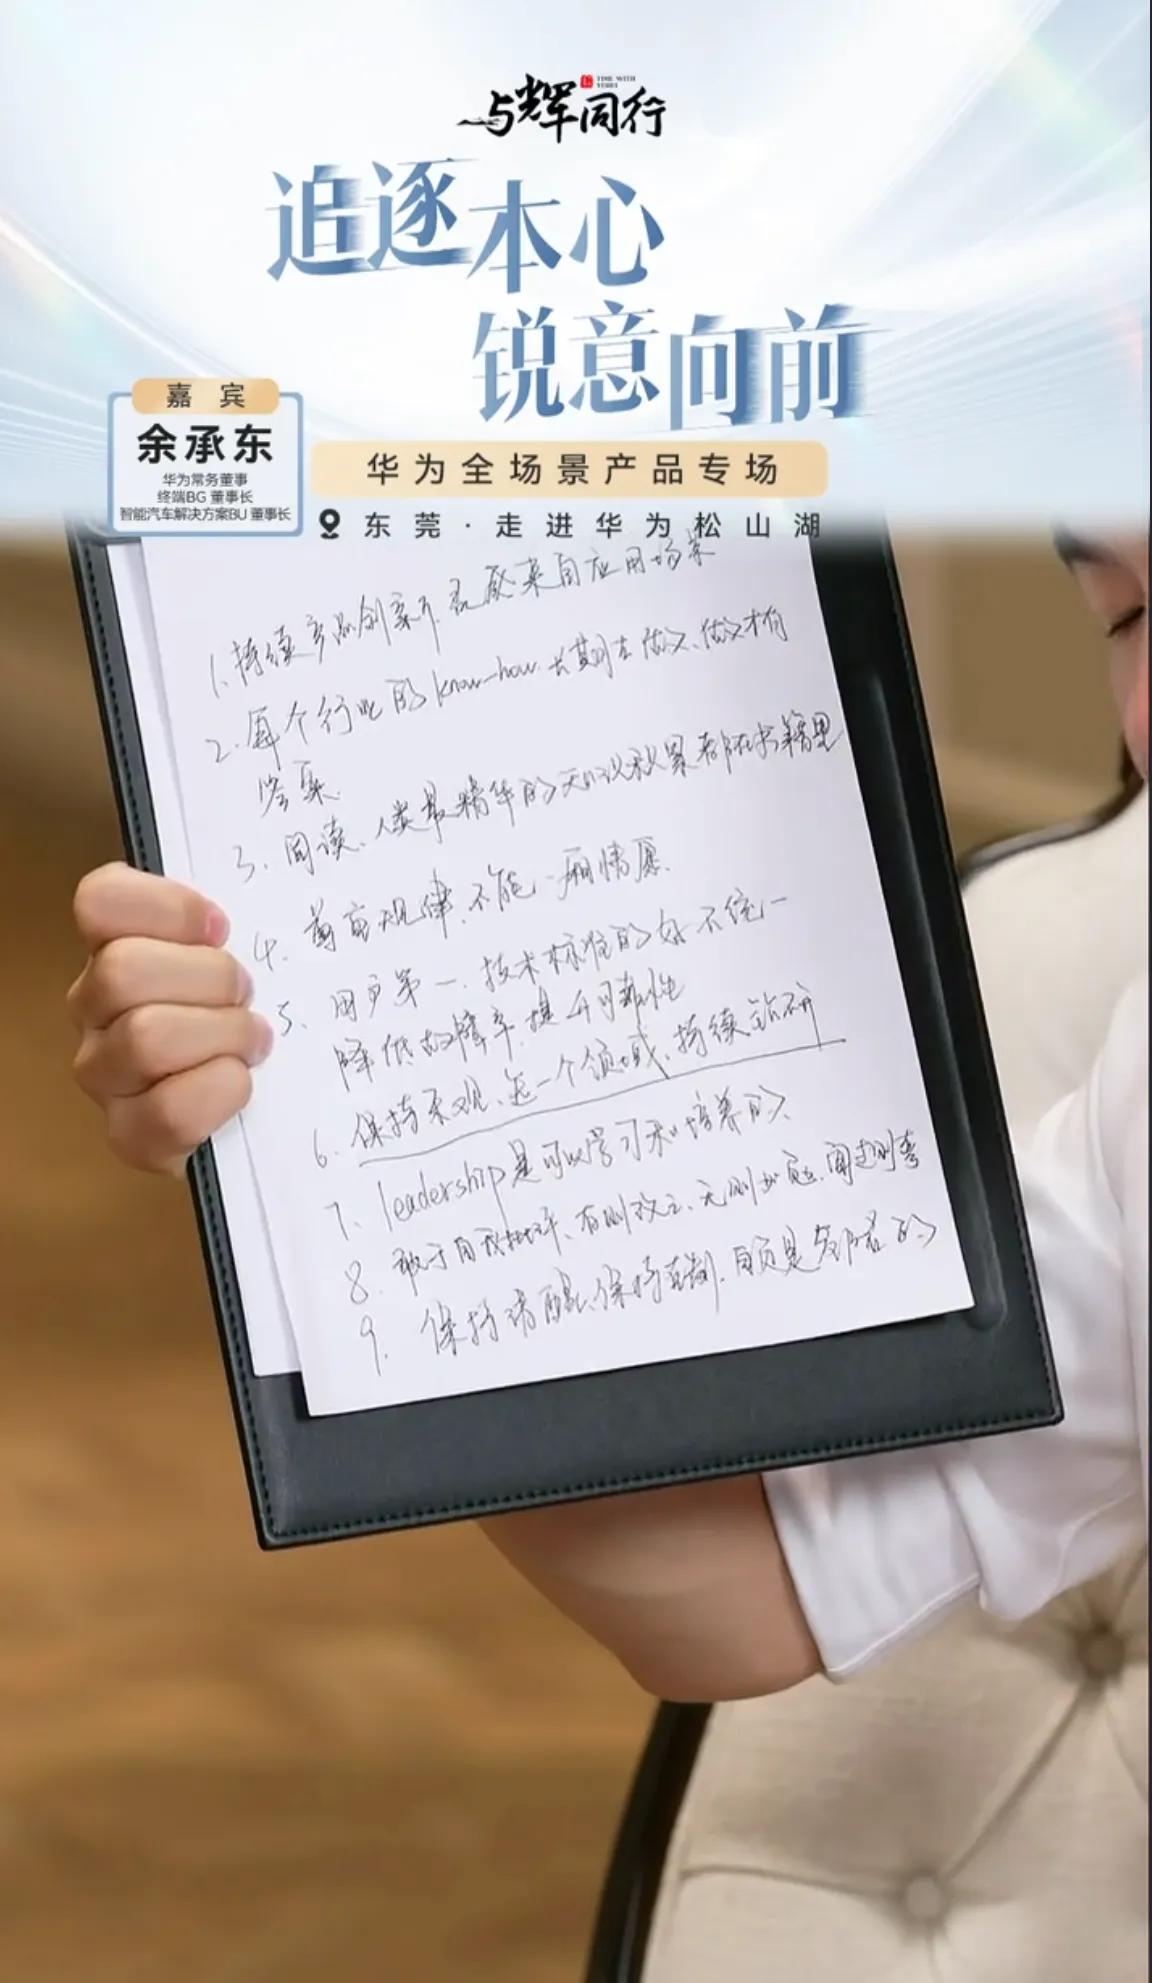 与辉同行
TIME WITH YUHUI
追逐本心
锐意向前
嘉宾
余承东
华为常务董事
终端BG 董事长
智能汽车解决方案BU 董事长
华为全场景产品专场
东莞·走进华为松山湖
1.持续产品创新,灵感来自应用场景
2.每个行业的know-how.长期去做,做了才有
答案.
3.阅读、人类最精华的知识积累都在书籍里
4.尊重规律,不能一厢情愿.
5、用户第一,技术标准的好不统一
降低故障率,提升可靠性
6.保持乐观、在一个领域,持续钻研
7、leadership是可以学习和培养的、
8.敢于自我批评、有则改之、无则加勉,闻过则喜
9.保持清醒、保持克制,自负是